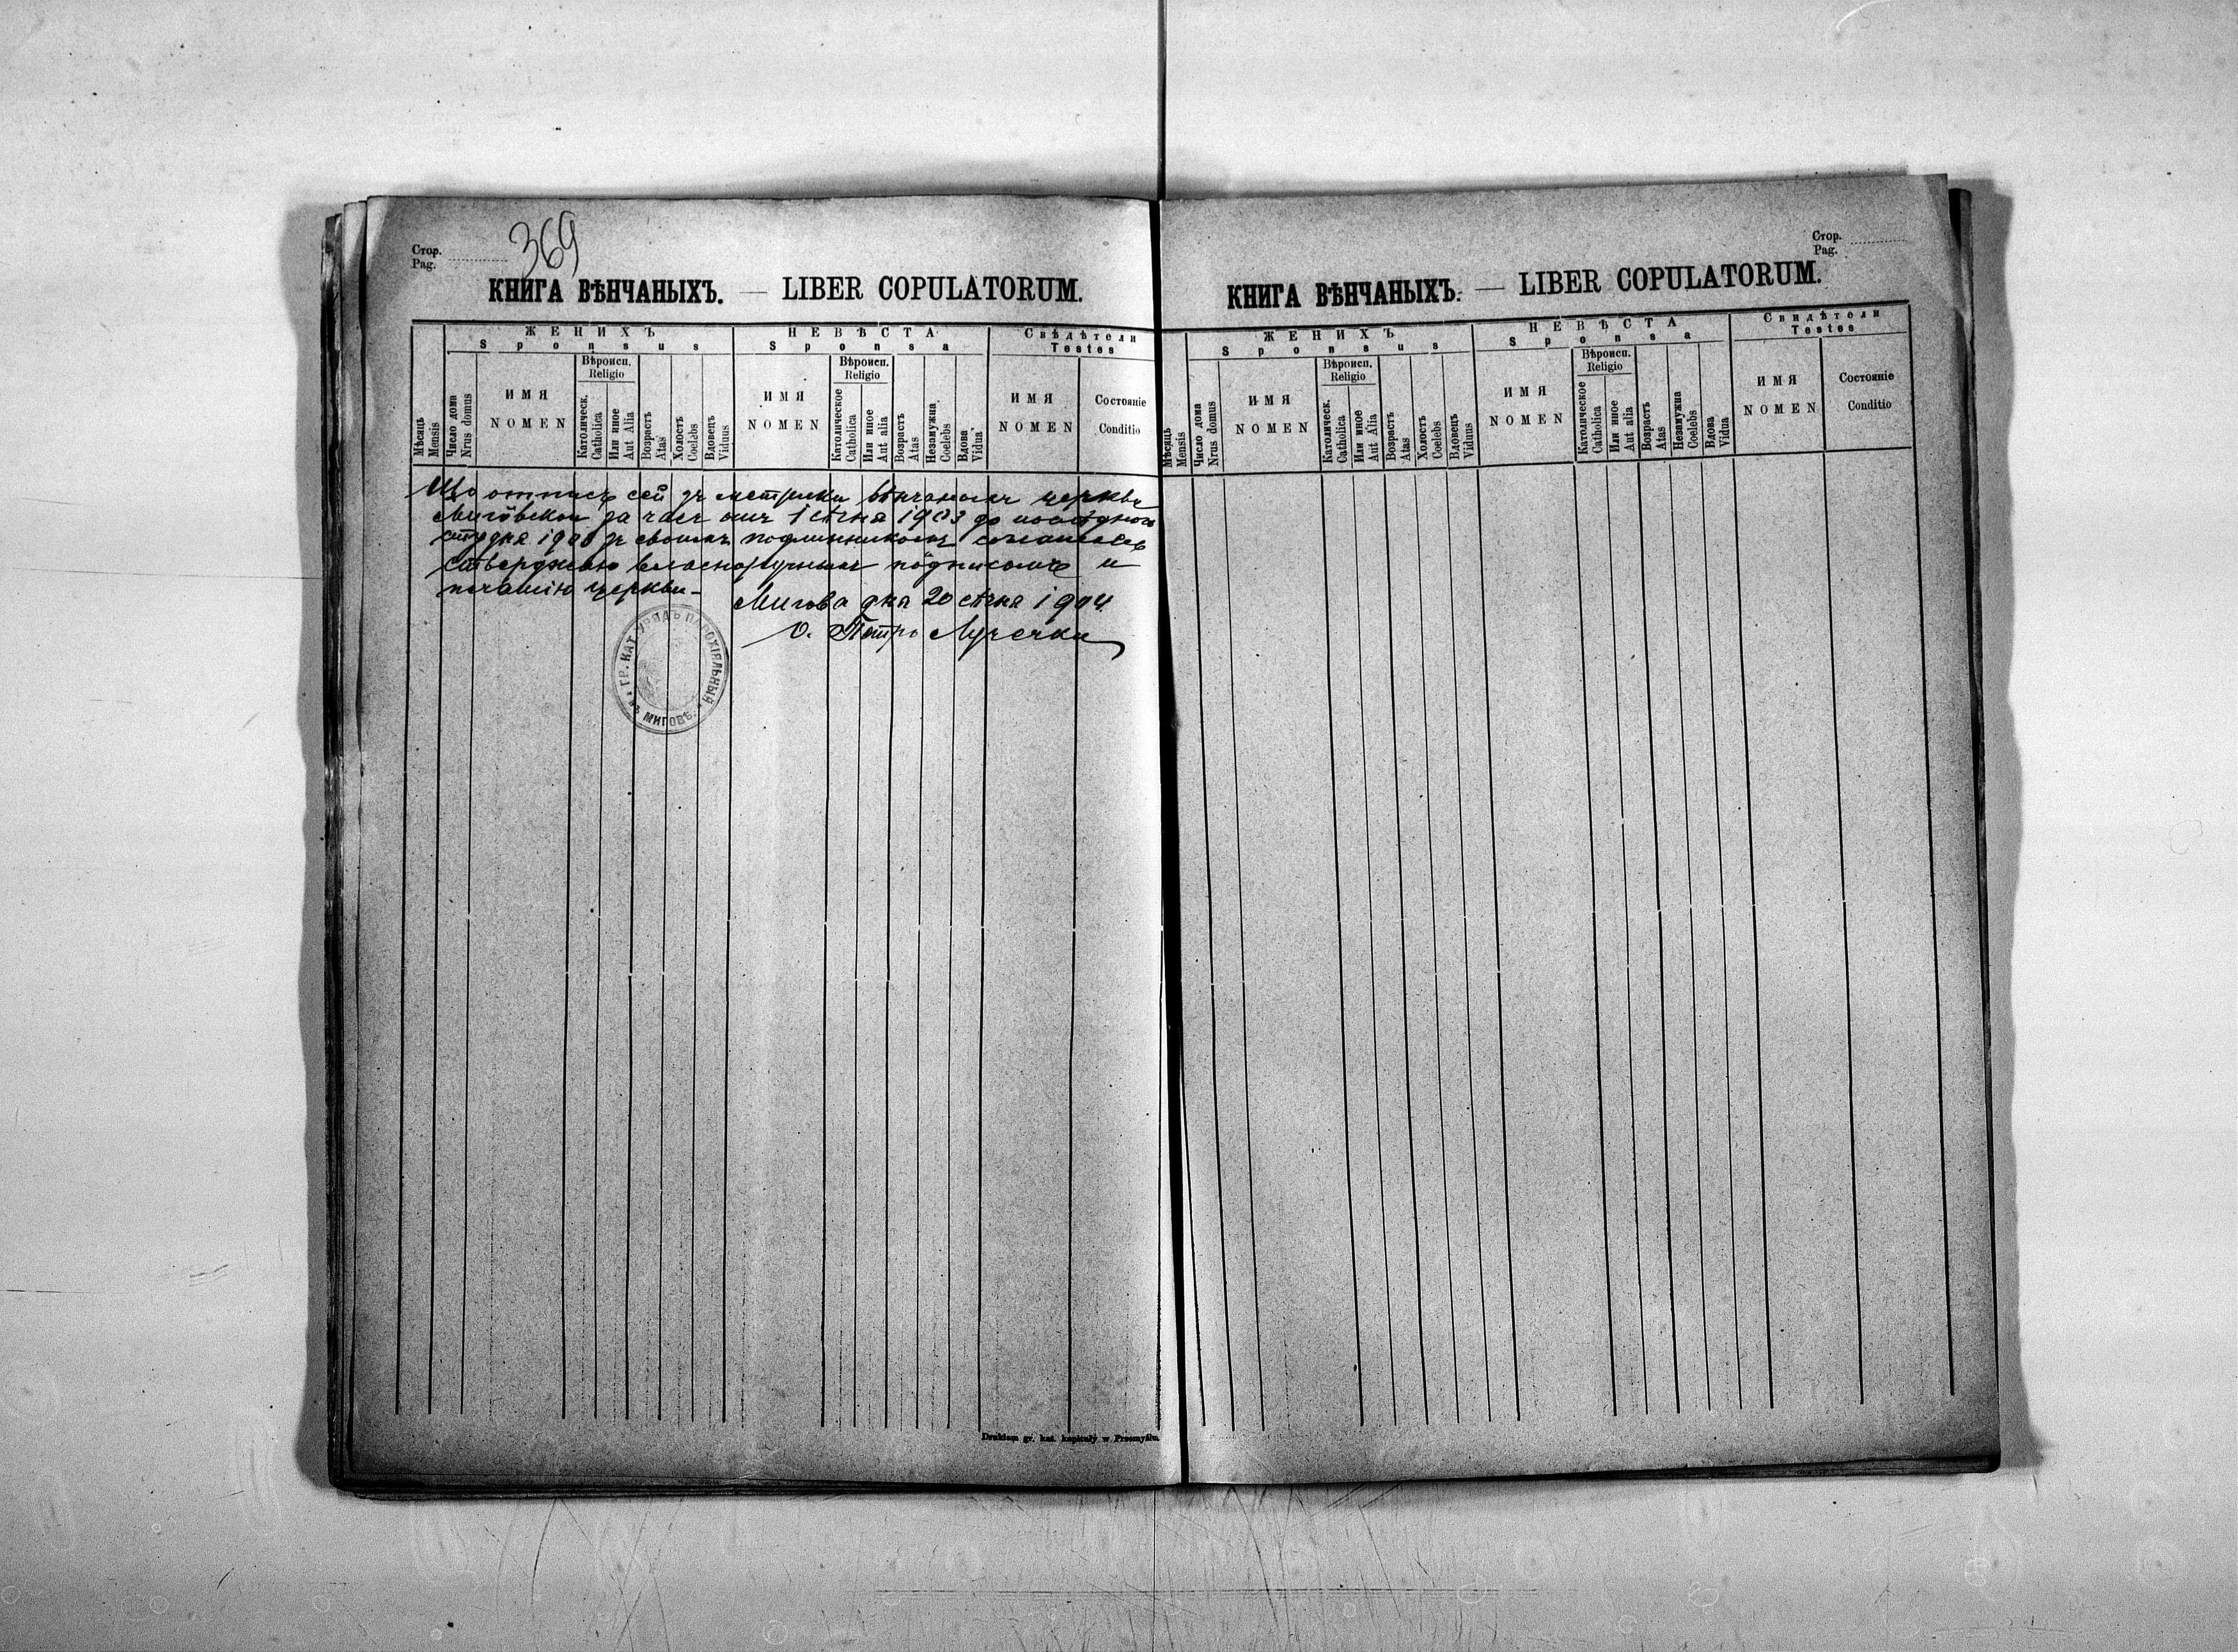 Стор.
Pag.
369
КНИГА ВѢНЧАНЫХЪ. — LIBER COPULATORUM.
ЖЕНИХЪ
Sponsus
НЕВѢСТА
Sponsa
Свѣдѣтели
Testes
Мѣсяць
Mensis
Число дома
Nrus domus
ИМЯ
NOMEN
Вѣроисп.
Religio
Католическ.
Catholica
Или иное
Aut Alia
Возрастъ
Atas
Холостъ
Coelebs
Вдовецъ
Viduus
ИМЯ
NOMEN
Вѣроисп.
Religio
Католическое
Catholica
Или иное
Aut Alia
Возрастъ
Atas
Незамужна
Coelebs
Вдова
Vidua
ИМЯ
NOMEN
Состояніе
Conditio
Що отписъ сей зъ метрики вѣнчаныхъ церкви
Миговской за часъ отъ 1 сѣчня 1903 до послѣдного
студня 1903 зъ своимъ подлинникомъ
ствержаю власноручнымъ подписомъ и
печатію церкви.
Мигова дня 20 сѣчня 1904.
О. Петръ
ГР. КАТ. УРЯДЪ ПАРОХІЯЛЬНЫЙ
въ МИГОВѢ.
Drukiem gr. kat. kapituły w Przemyślu.
Стор.
Pag.
КНИГА ВѢНЧАНЫХЪ. — LIBER COPULATORUM.
ЖЕНИХЪ
Sponsus
НЕВѢСТА
Sponsa
Свидѣтели
Testes
Мѣсяць
Mensis
Число дома
Nrus domus
ИМЯ
NOMEN
Вѣроисп.
Religio
Католическ.
Catholica
Или иное
Aut Alia
Возрастъ
Atas
Холостъ
Coelebs
Вдовецъ
Viduus
ИМЯ
NOMEN
Вѣроисп.
Religio
Католическое
Catholica
Или иное
Aut alia
Возрастъ
Atas
Незамужна
Coelebs
Вдова
Vidua
ИМЯ
NOMEN
Состояніе
Conditio